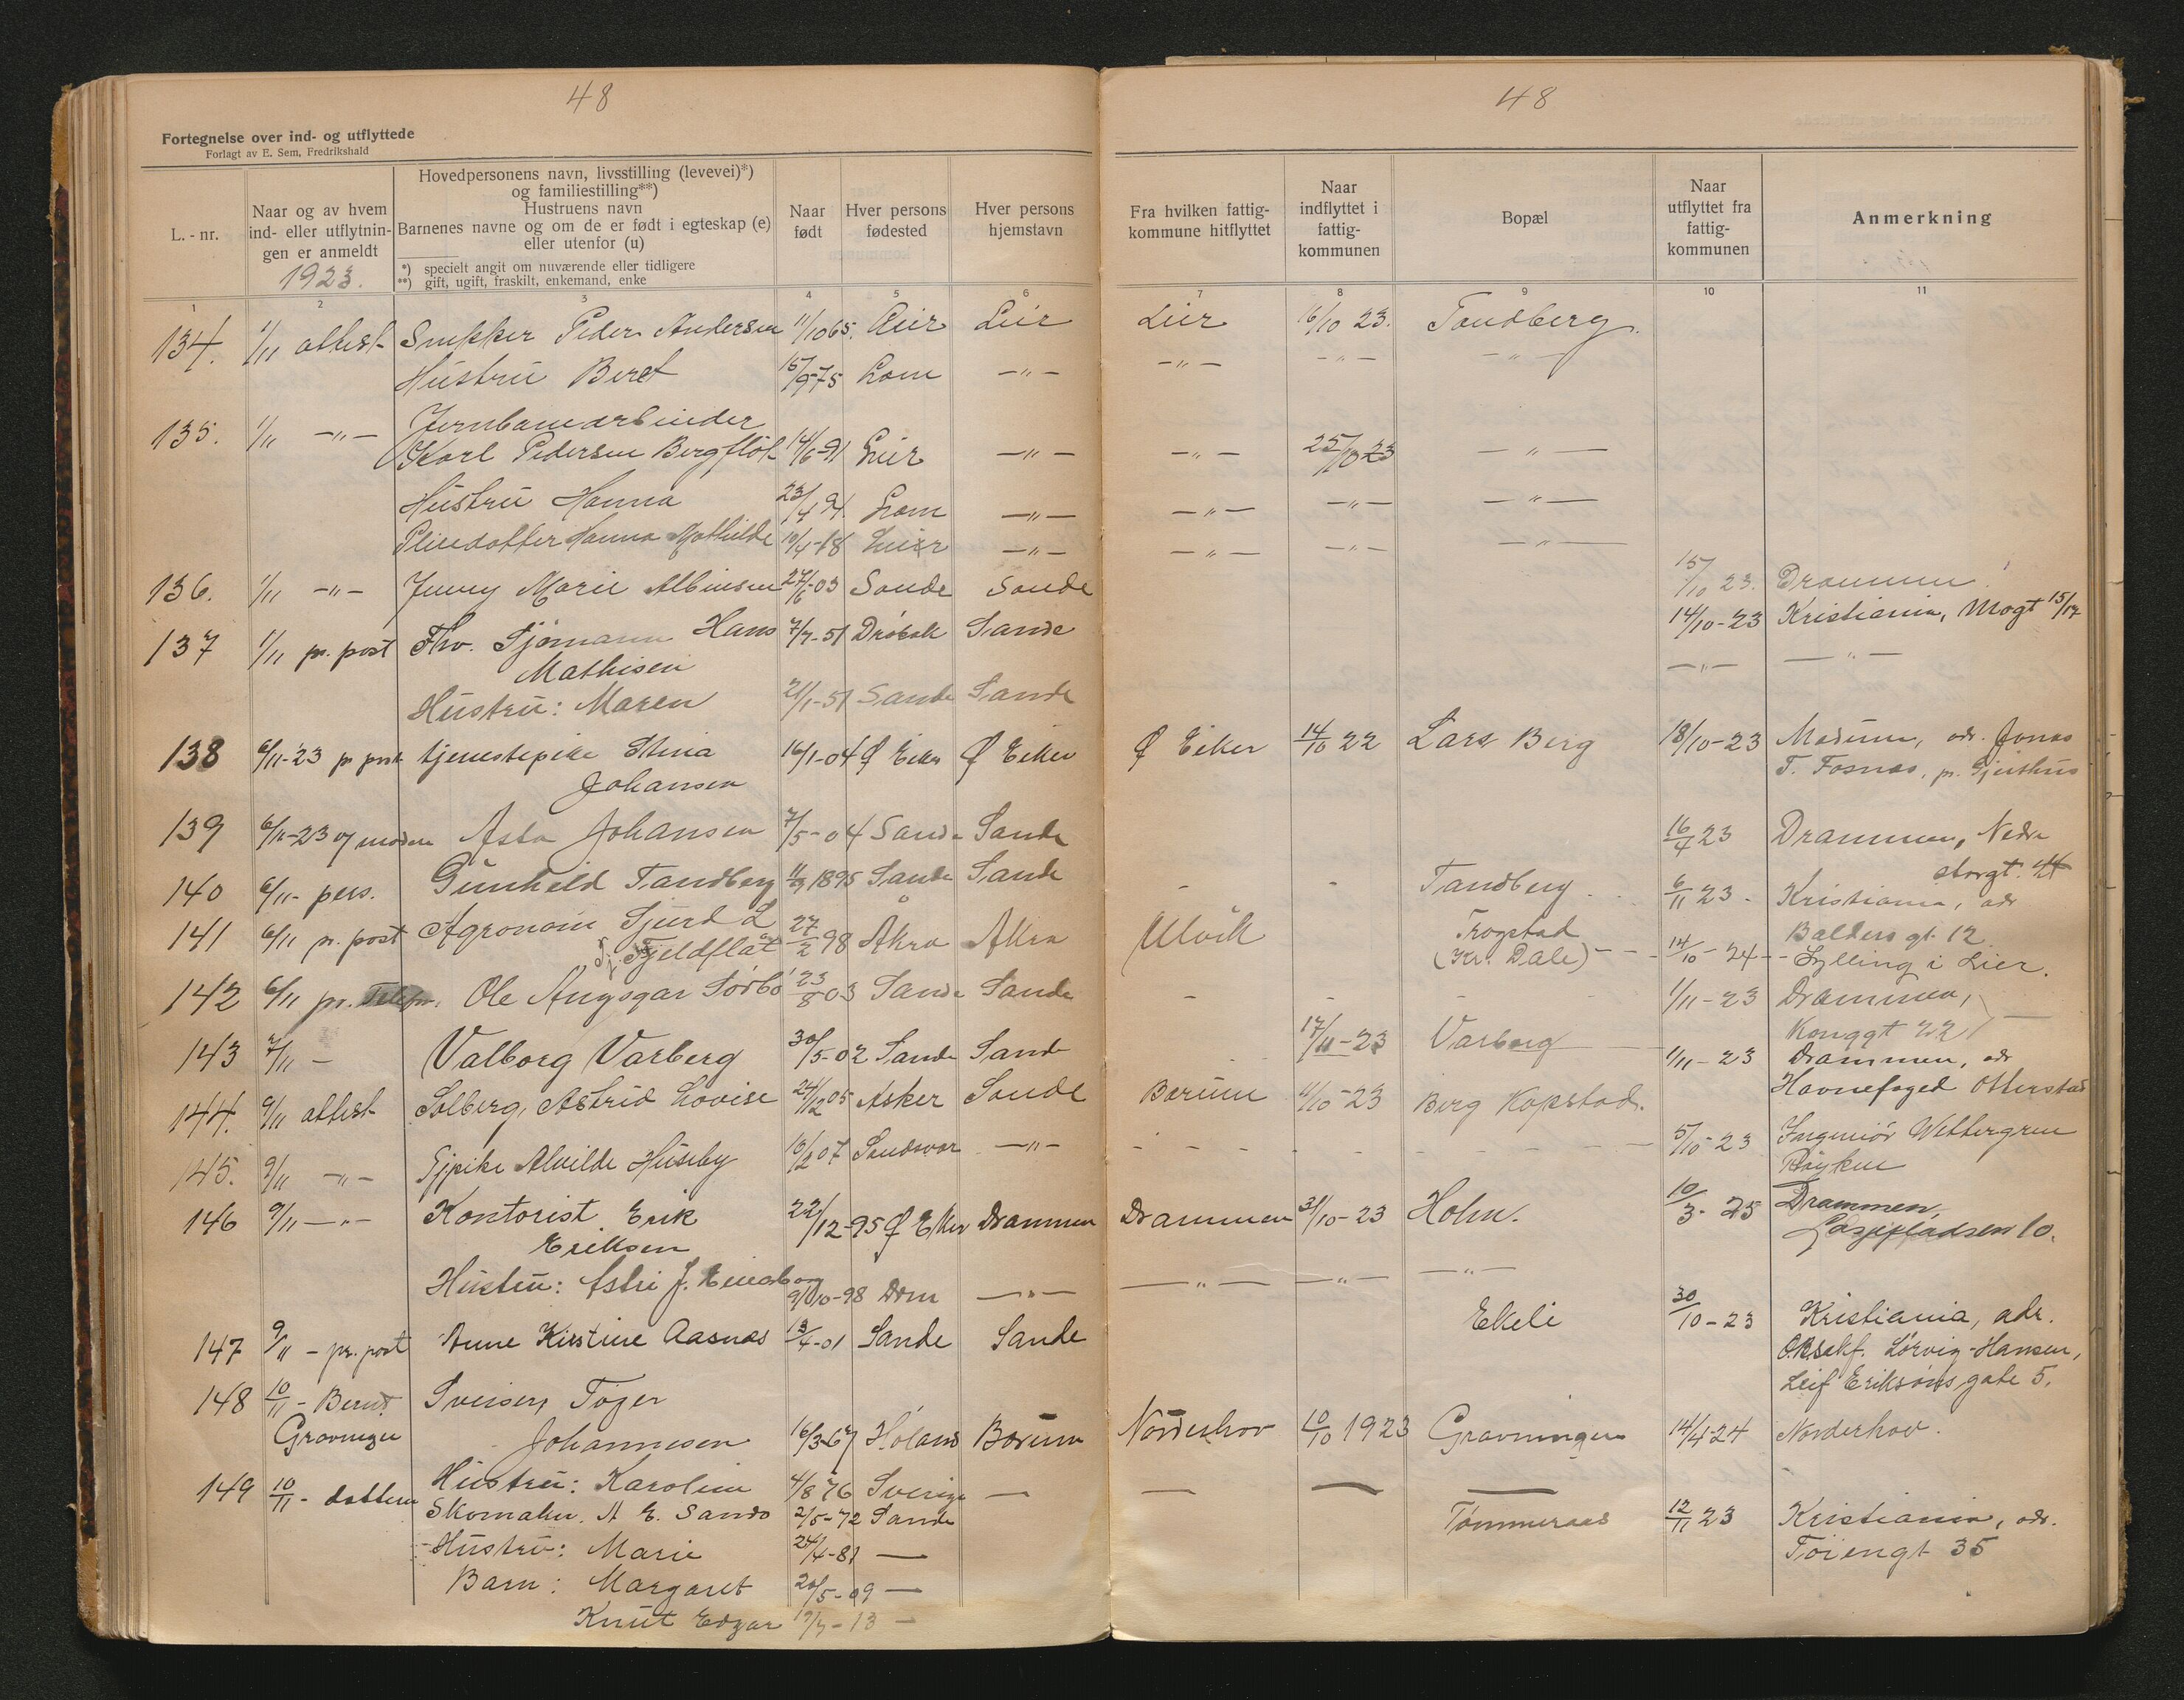 48
48
Fortegnelse over ind- og utflyttede
Forlagt av E. Sem, Fredrikshald
L. - nr.
Naar og av hvem ind- eller utflytningen er anmeldt
1923.
Hovedpersonens navn, livsstilling (levevei)*)
og familiestilling**)
Hustruens navn
Barnenes navne og om de er født i egteskap (e)
eller utenfor (u)
*) specielt angit om nuværende eller tidligere
**) gift, ugift, fraskilt, enkemand, enke
Naar født
Hver persons fødested
Hver persons hjemstavn
Fra hvilken fattigkommune hitflyttet
Naar indflyttet i fattigkommunen
Bopæl
Naar utflyttet fra fattigkommunen
Anmerkning
1 2 3 4 5 6 7 8 9 10 11
134. 1/11 attest Snekker Peder Andersen 11/10 65. Lier Lier Lier 16/10 23. Tandberg.
Hustru Beret 15/9-75 Lom —"— —"— —"— —"—
135. 1/11 —"— Jernbanearbeider
Karl Pedersen Bergflöt 14/6-91 Lier —"— —"— 25/10 23 —"—
Hustru Hanna 23/4 91. Lom —"— —"— —"— —"—
Pleiedatter Hanna Mathilde 10/4-18 Lier —"— —"— —"— —"—
136. 1/11 —"— Jenny Marie Albinsen 27/6-03 Sande Sande 15/10 23. Drammen
137 1/11 pr. post Fhv. Sjömann Hans 7/7-51 Dröbak Sande 14/10-23 Kristiania, Mogt 15/17
Mathisen —"— —"—
Hustru: Maren 21/1-51 Sande Sande
138 6/11-23 pr post tjenestepike Stina 16/1-04 Ø Eiker Ø Eiker Ø Eiker 14/10 22 Lars Berg 18/10-23 Modum, adr. Jonas
Johansen T. Fosnæs, pr. Gjeithus
139 6/11-23 av moderen Asta Johansen 7/5-04 Sande Sande 16/4 23 Drammen, Nedre
storgt. 44
140 6/11- pers. Gunhild Tandberg 11/9 1895 Sande Sande - - Tandberg 6/11 23 - Kristiania, adr
Balders gt. 12
141 6/11 pr. post Agronom Sjurd L 27/2 98 Åkra Åkra Ulvik Trogstad
Fjeldflåt (Kr. Dale) 14/10-24 - Sylling i Lier.
142 6/11 pr. Telefon. Ole Ansgar Sörbö 23/8 03 Sande Sande - - - 1/11-23 Drammen,
Konggt 22
143 7/11 - Valborg Varberg 30/5-02 Sande Sande - 17/11-23 Varberg 1/11-23 Drammen, adr
Havnefoged Otterstad
144. 9/11 attest Solberg, Astrid Lovise 24/12 05 Asker Sande Bærum 11/10-23 Berg Kopstad.
145. 9/11 —"— Tjpike Alvilde Huseby 10/2 07 Sandsvær —"— 5/10-23 Ingeniör Wettergren
Röyken
146 9/11 —"— Kontorist Erik 22/12-95 Ø Eker Drammen Drammen 31/10-23 Holm. 10/3-25 Drammen
Eriksen 10.
Hustru: Astri J. 9/10-98 Drm —"— —"— —"— —"—
147 9/11 - pr. post Anne Kirstine Aasnæs 13/4-01 Sande Sande Ekeli 30/10-23 Kristiania, adr.
O.R.sakf. Sørvig-Hansen,
Leif Eriksöns gate 5.
148 10/11 - Bernt Sveiser, Töger
Gravningen Johannesen 16/3-67 Höland Bærum Norderhov 10/10 1923 Gravningen 14/4-24 Norderhov.
Hustru: Karoline 4/8 76 Sverige — — — —
149 10/11 - datteren Skomaker A E. Sando 2/5-72 Sande Tömmeraas 12/11 23 Kristiania, adr.
Hustru: Marie 24/4-81 — Töiengt 35
Barn: Margaret 20/5-09 —
Knut Edgar 19/7-13 —